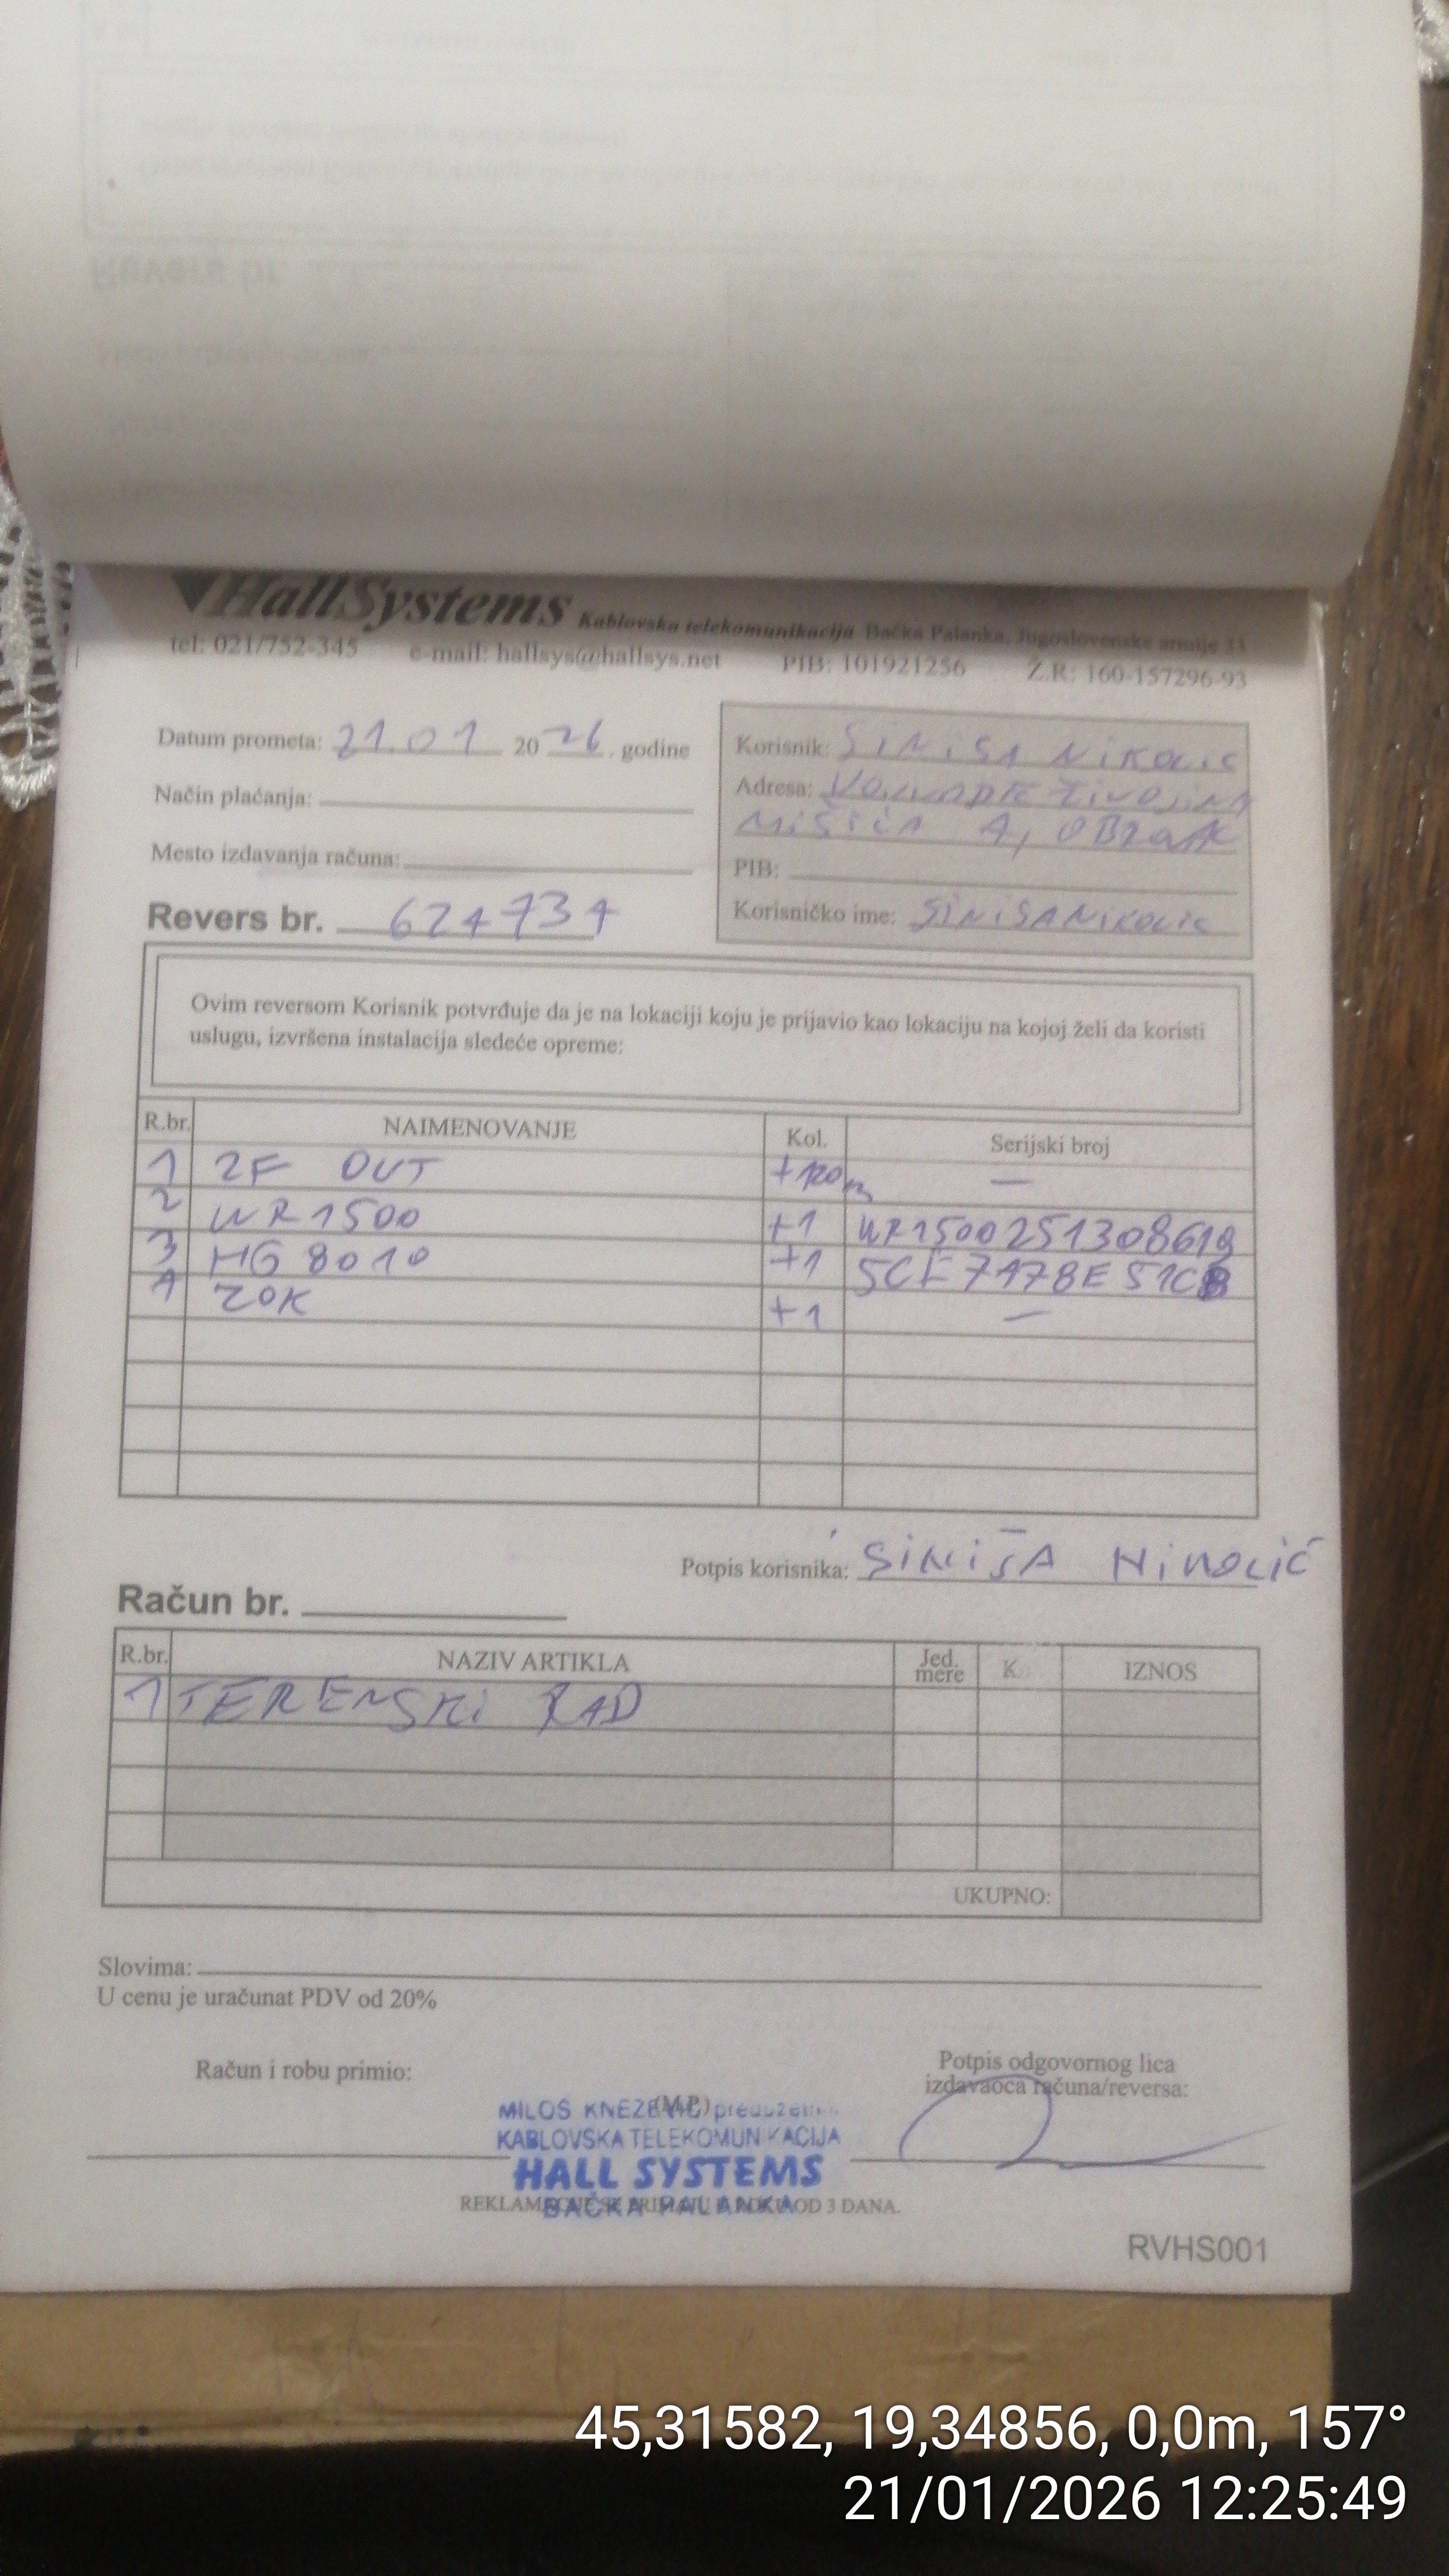 HallSystems Kablovska telekomunikacija Bačka Palanka, Jugoslovenske armije 33
tel: 021/752-345 e-mail: hallsys@hallsys.net PIB: 101921256 Ž.R: 160-157296-93
Datum prometa: 21.01 2026. godine
Način plaćanja:
Mesto izdavanja računa:
Revers br. 624734
Korisnik: SINISA NIKOLIC
Adresa: VOJVODE ŽIVOJINA
MIŠIĆA 4, OBROVAC
PIB:
Korisničko ime: SINISANIKOLIC
Ovim reversom Korisnik potvrđuje da je na lokaciji koju je prijavio kao lokaciju na kojoj želi da koristi
uslugu, izvršena instalacija sledeće opreme:
R.br. NAIMENOVANJE Kol. Serijski broj
1 2F OUT +120m —
2 WR1500 +1 WR1500251308619
3 HG8010 +1 5CE7478E51CB
4 ZOK +1 —
Potpis korisnika: SINIŠA NIKOLIĆ
Račun br.
R.br. NAZIV ARTIKLA Jed. mere K IZNOS
1 TERENSKI RAD
UKUPNO:
Slovima:
U cenu je uračunat PDV od 20%
Račun i robu primio:
Potpis odgovornog lica
izdavaoca računa/reversa:
(M.P.)
MILOS KNEZEVIC preduzetnik
KABLOVSKA TELEKOMUNIKACIJA
HALL SYSTEMS
BAČKA PALANKA
REKLAMACIJE SE PRIMAJU U ROKU OD 3 DANA.
RVHS001
45,31582, 19,34856, 0,0m, 157°
21/01/2026 12:25:49